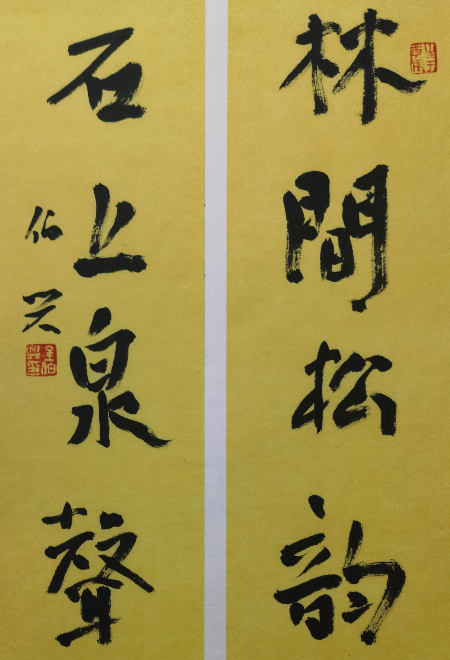 林間松韵
石上泉聲
伯兴